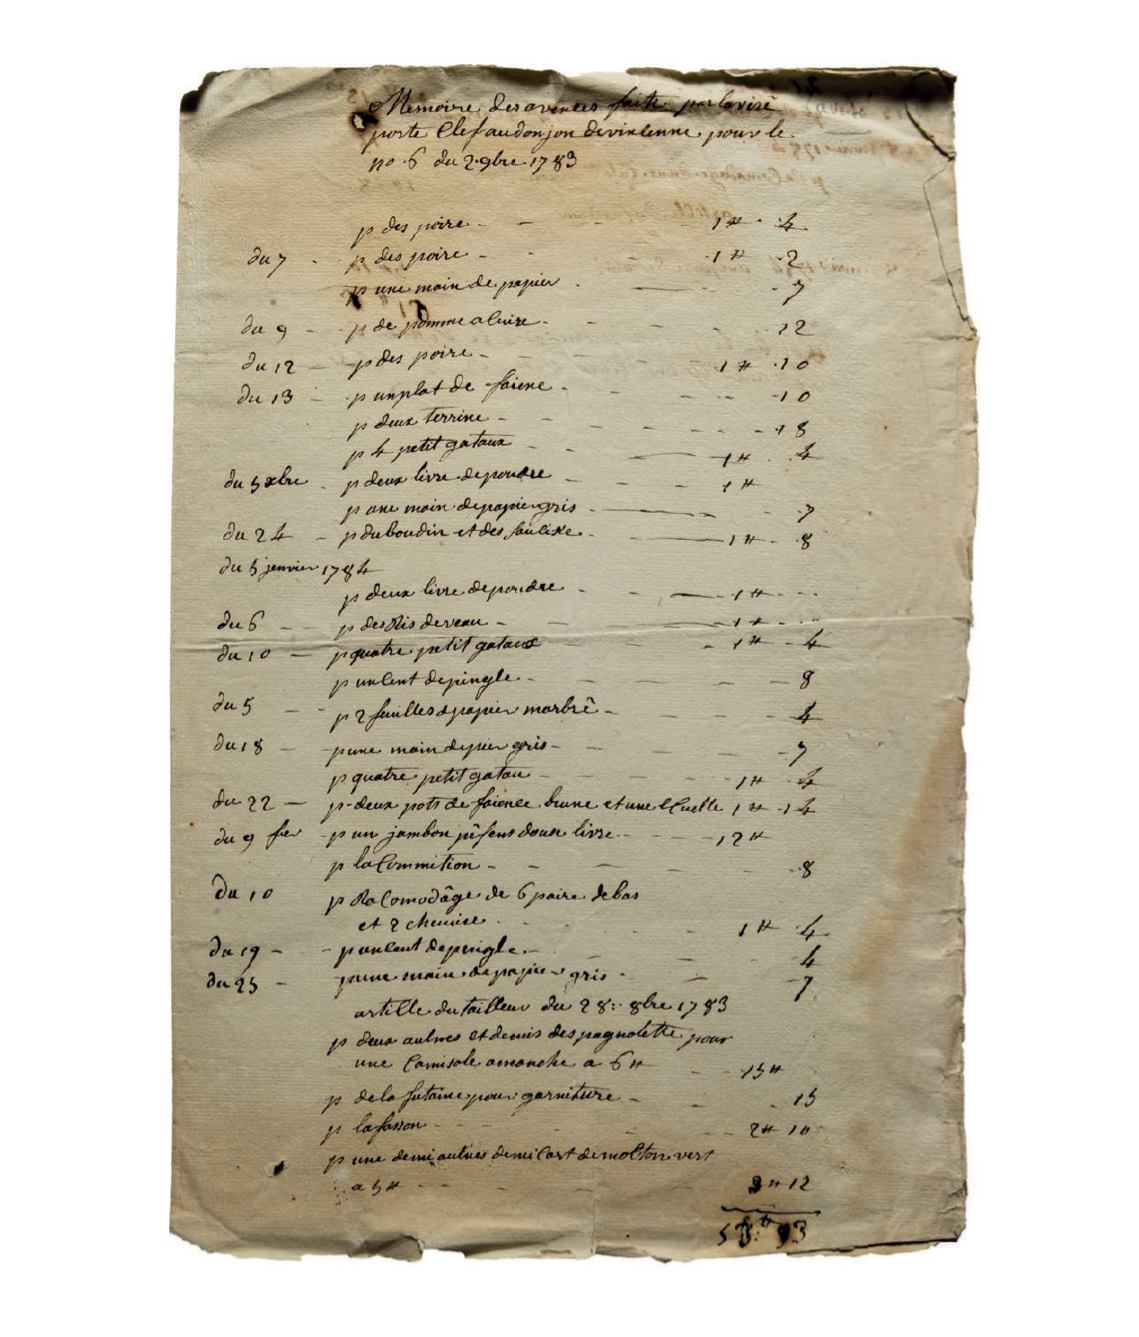 Memoire des avences faite par lavisé
porte Clef au donjon de vincenne pour le
no. 6 du 2. 9bre. 1783
p des poire - - - 1 ₶ . 4
du 7 - p des poire - - - 1 ₶ . 2
p une main de papier . - 7
du 9 - p de pomme a Cuire - - - 12
du 12 - p des poire - - - 1 ₶ . 10
du 13 - p un plat de faiene - - 10
p deux terrine - - - 18
p 4 petit gataux - - 1 ₶ . 4
du 5 xbre - p deux livre de poudre - - 1 ₶
p une main de papier gris - - 7
du 24 - p du boudin et des saulixe - 1 ₶ . 8
du 5 jenvier 1784
p deux livre de poudre - - 1 ₶ - - -
du 6 - p des Ris de veau - - 1 ₶ - ..
du 10 - p quatre petit gataux - - 1 ₶ - 4
p un Cent depingle - - - 8
du 5 - p 2 fuilles d papier marbré - - - 4
du 18 - p une main de pier gris - - - 7
p quatre petit gatau - - - 1 ₶ . 4
du 22 - p deux pots de faience brune et une ecuelle 1 ₶ - 14
du 9 fer - p un jambon pesent douse livre - - 12 ₶
p la Commition - - - 8
du 10 p Racomodâge de 6 paire de bas
et 2 chemise - - 1 ₶ . 4
du 19 - p un Cent depingle - 4
du 25 - p une main de papier gris - - 7
artille du tailleur du 28: 8bre 1783
p deux aulnes et demis despagnolette pour
une Camisole amanche a 6 ₶ - 15 ₶
p de la futaine pour garniture - - 15
p la fasson - - 2 ₶ 10
p une demi aulnes demi Cart de molton vert
a 5 ₶ - - - 3 ₶ 12
₶ 13